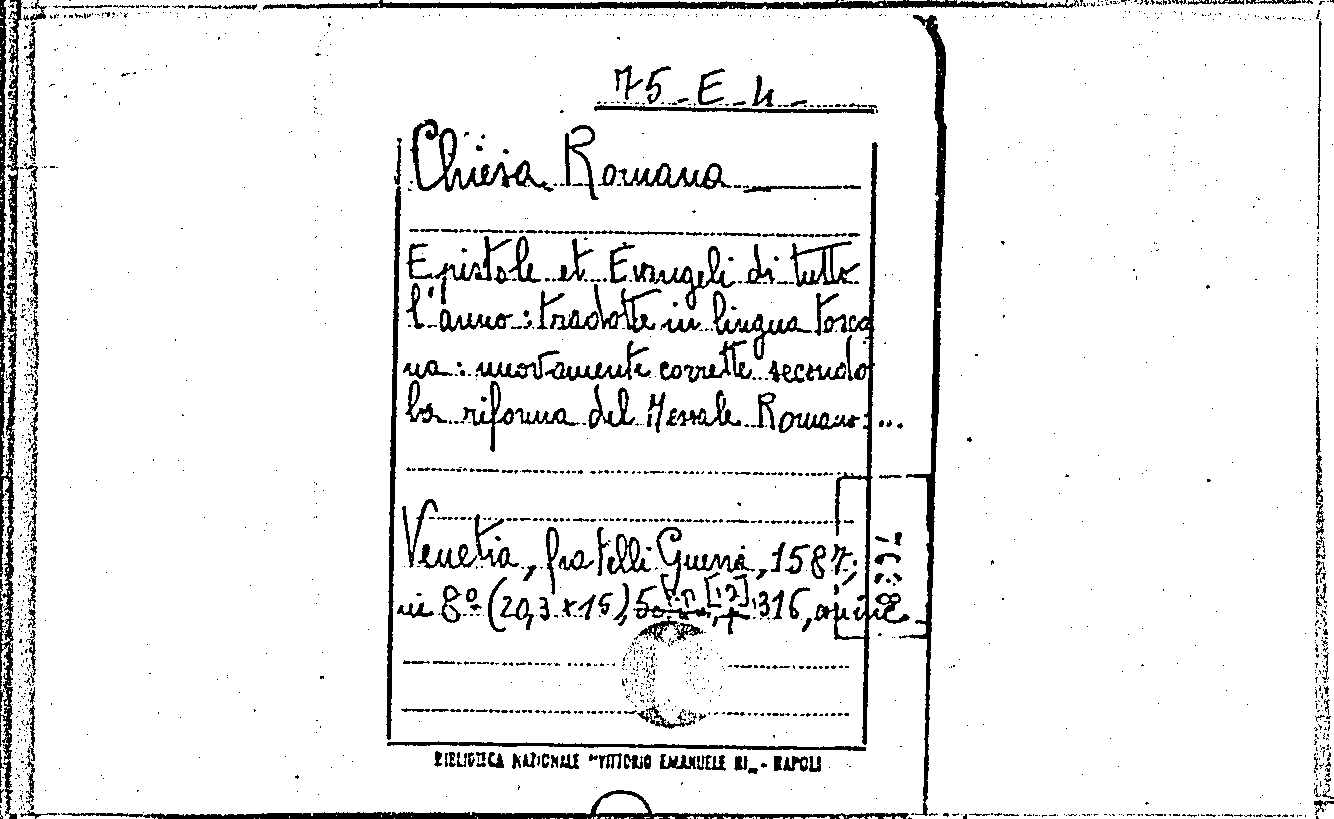 75 - E - 4 -
Chiesa Romana
Epistole et Evangeli di tutto
l'anno: tradotte in lingua tosca
na: nuovamente corrette secondo
la riforma del Messale Romano: ...
Venetia, fratelli Guerra, 1587;
in 8º (20,3 x 15), 316,
BIBLIOTECA NAZIONALE "VITTORIO EMANUELE III" - NAPOLI